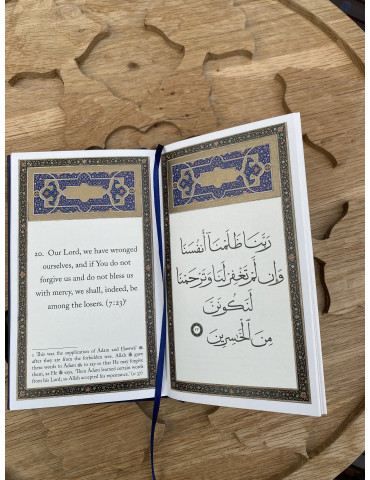 20. Our Lord, we have wronged
ourselves, and if You do not
forgive us and do not bless us
with mercy, we shall, indeed, be
among the losers. (7:23)¹
1 This was the supplication of Adam and Ḥawwāʾ
after they ate from the forbidden tree. Allah ﷻ gave
these words to Adam to say so that He may forgive
them, as He ﷻ says, 'Then Adam learned certain words
from his Lord; so Allah accepted his repentance.'
رَبَّنَا ظَلَمْنَآ أَنْفُسَنَا
وَإِن لَّمْ تَغْفِرْ لَنَا وَتَرْحَمْنَا
لَنَكُونَنَّ
مِنَ ٱلْخَٰسِرِينَ